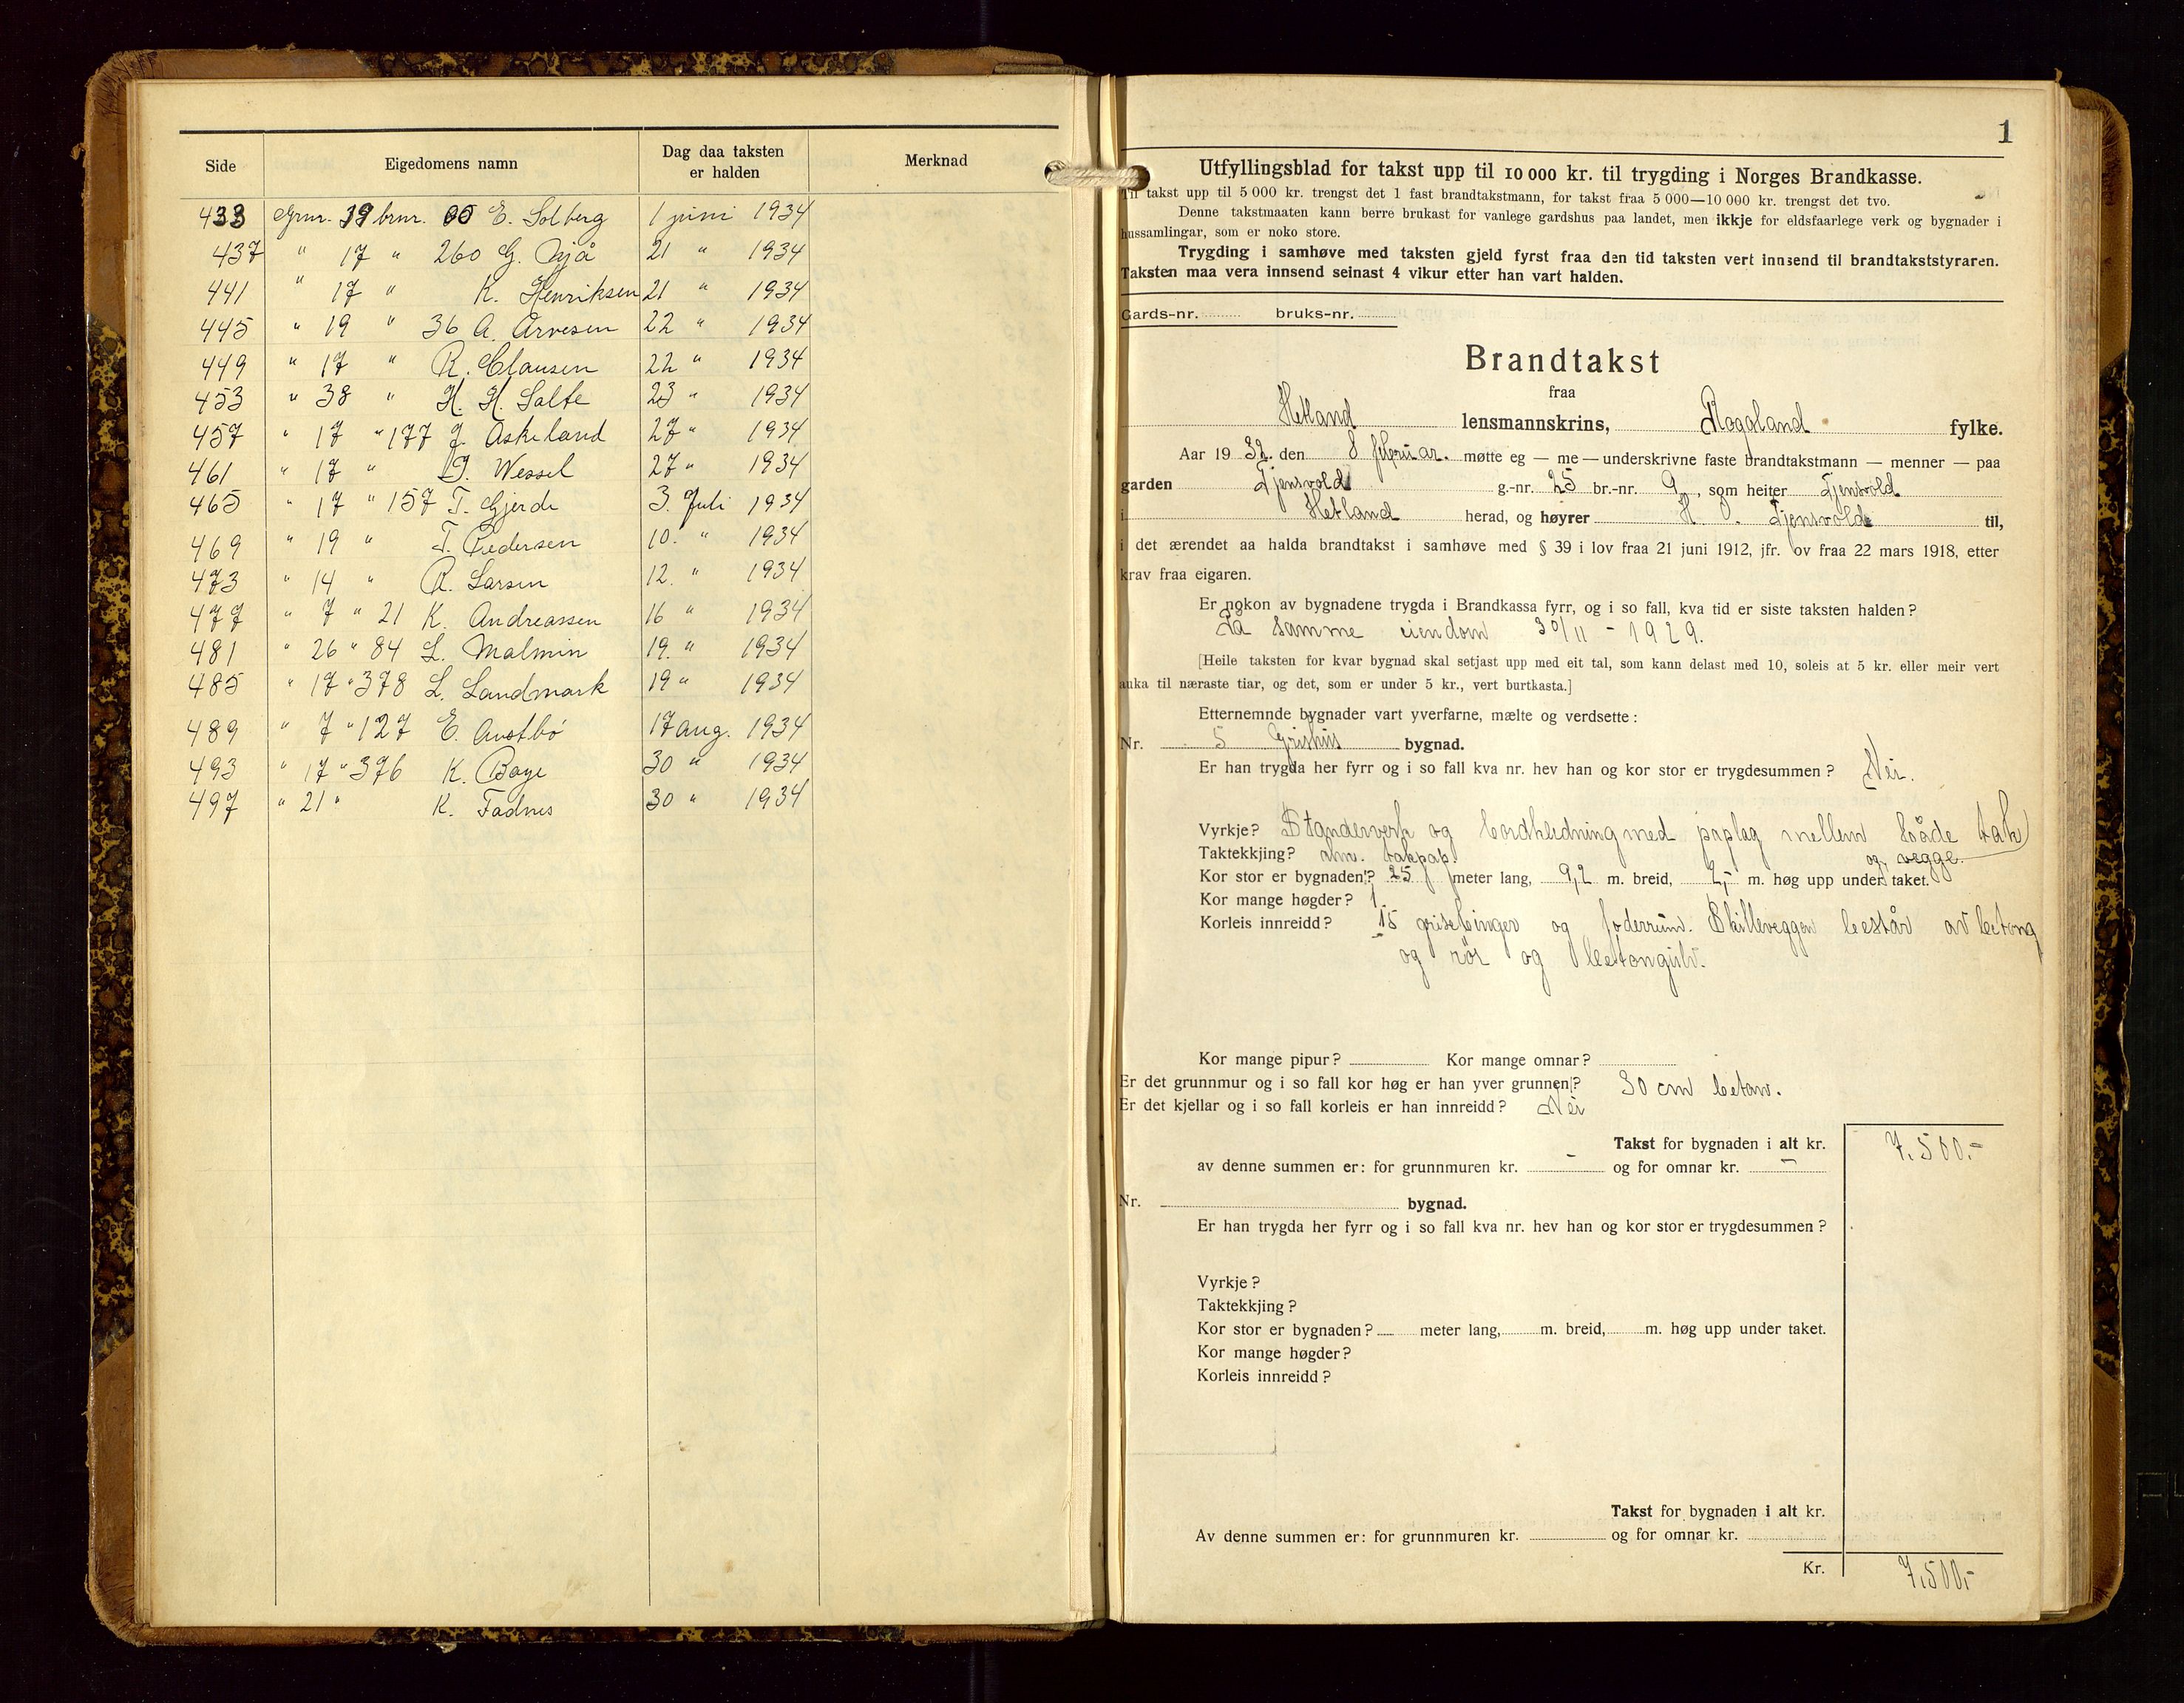 Side Eigedomens namn Dag daa taksten er halden Merknad
433 Grnr. 39 brnr. 65 E. Solberg 1 juni 1934
437 " 17 " 260 G. 21 " 1934
441 " 17 " K. Henriksen 21 " 1934
445 " 19 " 36 A. Arvesen 22 " 1934
449 " 17 " R. Clausen 22 " 1934
453 " 38 " H. H. Salte 23 " 1934
457 " 17 " 177 J. Askeland 27 " 1934
461 " 17 " J. Wessel 27 " 1934
465 " 17 " 157 T. Gjerde 3. Juli 1934
469 " 19 " T. Pedersen 10. " 1934
473 " 14 " R. Larsen 12. " 1934
477 " 7 " 21 K. Andreassen 16 " 1934
481 " 26 " 84 L. Malmin 19. " 1934
485 " 17 " 378 L. Landmark 19 " 1934
489 " 7 " 127 E. 17 aug. 1934
493 " 17 " 376 K. Boye 30 " 1934
497 " 21 " K. Fadnes 30 " 1934
1
Utfyllingsblad for takst upp til 10 000 kr. til trygding i Norges Brandkasse.
Til takst upp til 5 000 kr. trengst det 1 fast brandtakstmann, for takst fraa 5 000—10 000 kr. trengst det tvo.
Denne takstmaaten kann berre brukast for vanlege gardshus paa landet, men ikkje for eldsfaarlege verk og bygnader i
hussamlingar, som er noko store.
Trygding i samhøve med taksten gjeld fyrst fraa den tid taksten vert innsend til brandtakststyraren.
Taksten maa vera innsend seinast 4 vikur etter han vart halden.
Gards-nr. bruks-nr.
Brandtakst
fraa
Hetland lensmannskrins, Rogaland fylke.
Aar 1932 den 8 februar. møtte eg — me — underskrivne faste brandtakstmann — menner — paa
garden Tjensvold g.-nr. 25 br.-nr. 9, som heiter Tjensvold
i Hetland herad, og høyrer H. O. Tjensvold til,
i det ærendet aa halda brandtakst i samhøve med § 39 i lov fraa 21 juni 1912, jfr. ov fraa 22 mars 1918, etter
krav fraa eigaren.
Er nokon av bygnadene trygda i Brandkassa fyrr, og i so fall, kva tid er siste taksten halden?
På samme eiendom 30/11 - 1929.
[Heile taksten for kvar bygnad skal setjast upp med eit tal, som kann delast med 10, soleis at 5 kr. eller meir vert
auka til næraste tiar, og det, som er under 5 kr., vert burtkasta.]
Etternemnde bygnader vart yverfarne, mælte og verdsette:
Nr. 5 Grishus bygnad.
Er han trygda her fyrr og i so fall kva nr. hev han og kor stor er trygdesummen? Nei.
Vyrkje? Standerverk og bordkledning med paplag mellem både tak
og vegge.
Taktekkjing? alm. takpap.
Kor stor er bygnaden? 25 meter lang, 9,2 m. breid, 2,- m. høg upp under taket.
Kor mange høgder? 1.
Korleis innreidd? 15 grisebinger og foderrum. Skilleveggen består av betong
og rør og betongulv.
Kor mange pipur? Kor mange omnar?
Er det grunnmur og i so fall kor høg er han yver grunnen? 30 cm beton.
Er det kjellar og i so fall korleis er han innreidd? Nei
Takst for bygnaden i alt kr. 7.500.-
av denne summen er: for grunnmuren kr. - og for omnar kr. -
Nr. bygnad.
Er han trygda her fyrr og i so fall kva nr. hev han og kor stor er trygdesummen?
Vyrkje?
Taktekkjing?
Kor stor er bygnaden? meter lang, m. breid, m. høg upp under taket.
Kor mange høgder?
Korleis innreidd?
Takst for bygnaden i alt kr.
Av denne summen er: for grunnmuren kr. og for omnar kr.
Kr. 7.500,-